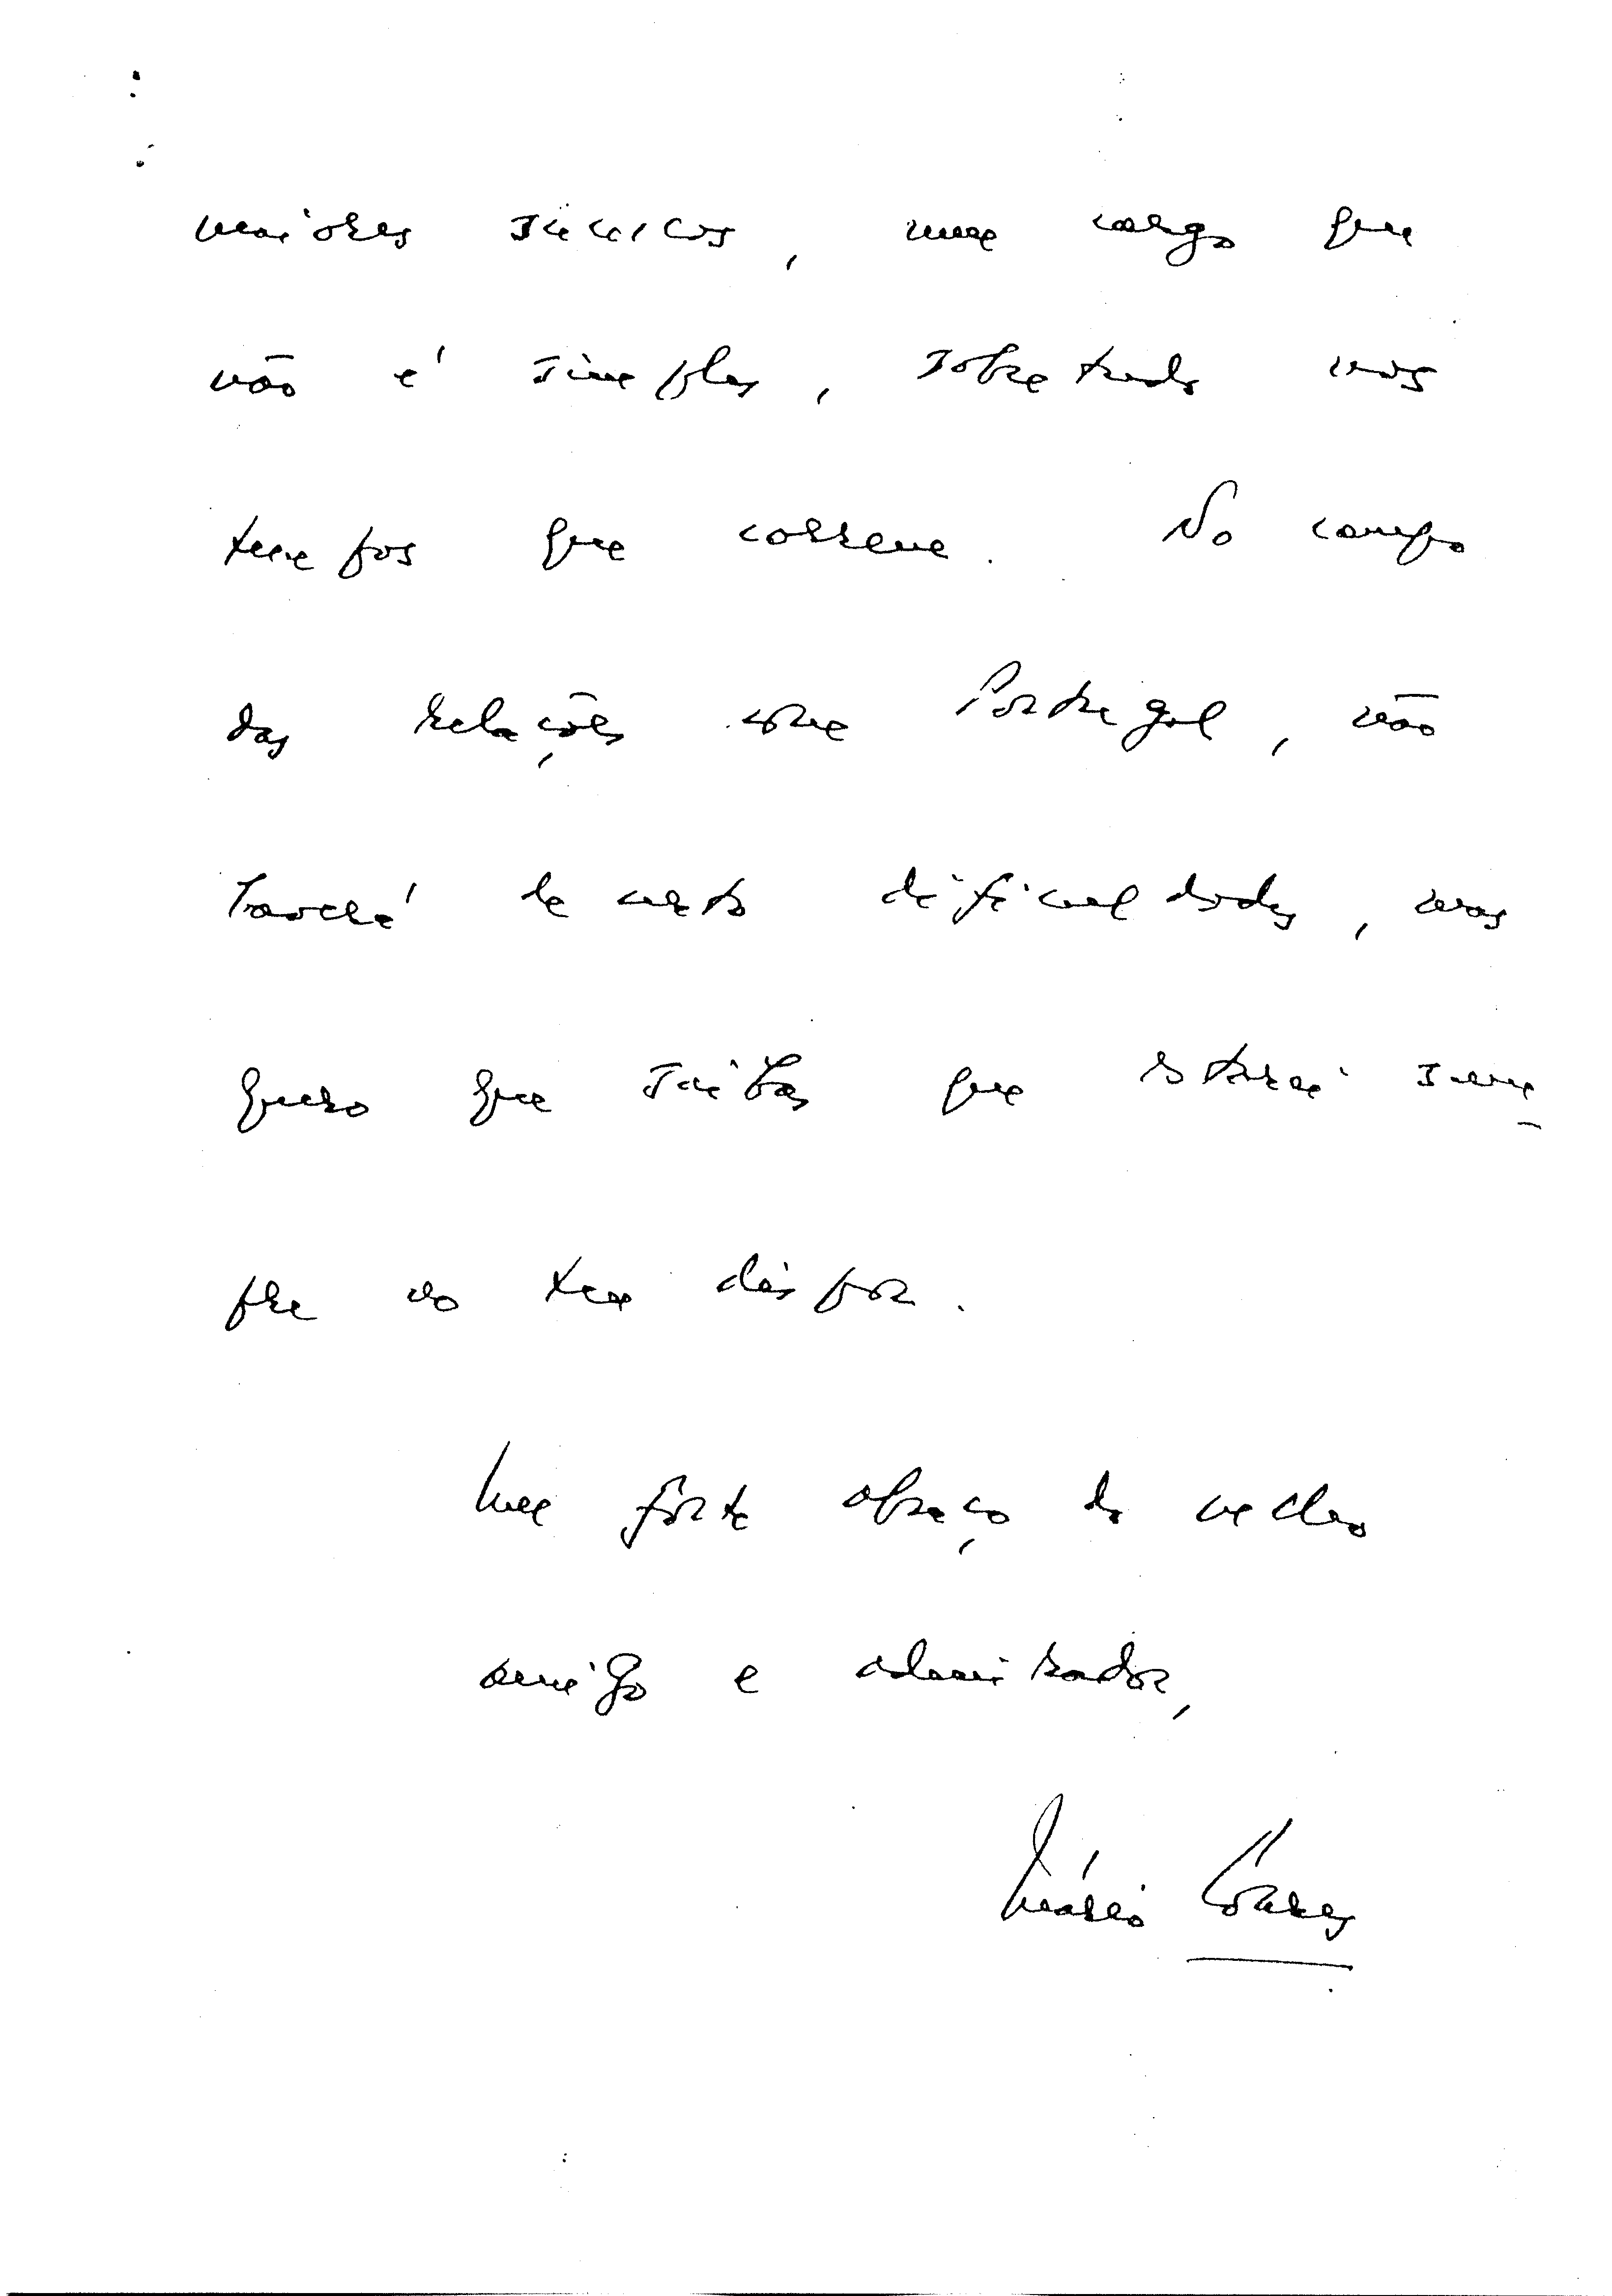 maiores sucessos, num cargo que
não é simples, sobretudo nos
tempos que correm. No campo
das relações com Portugal, não
haverá de certo dificuldades, mas
quero que saibas que estarei sem-
pre ao teu dispor.
Um forte abraço do velho
amigo e admirador,
Mário Soares